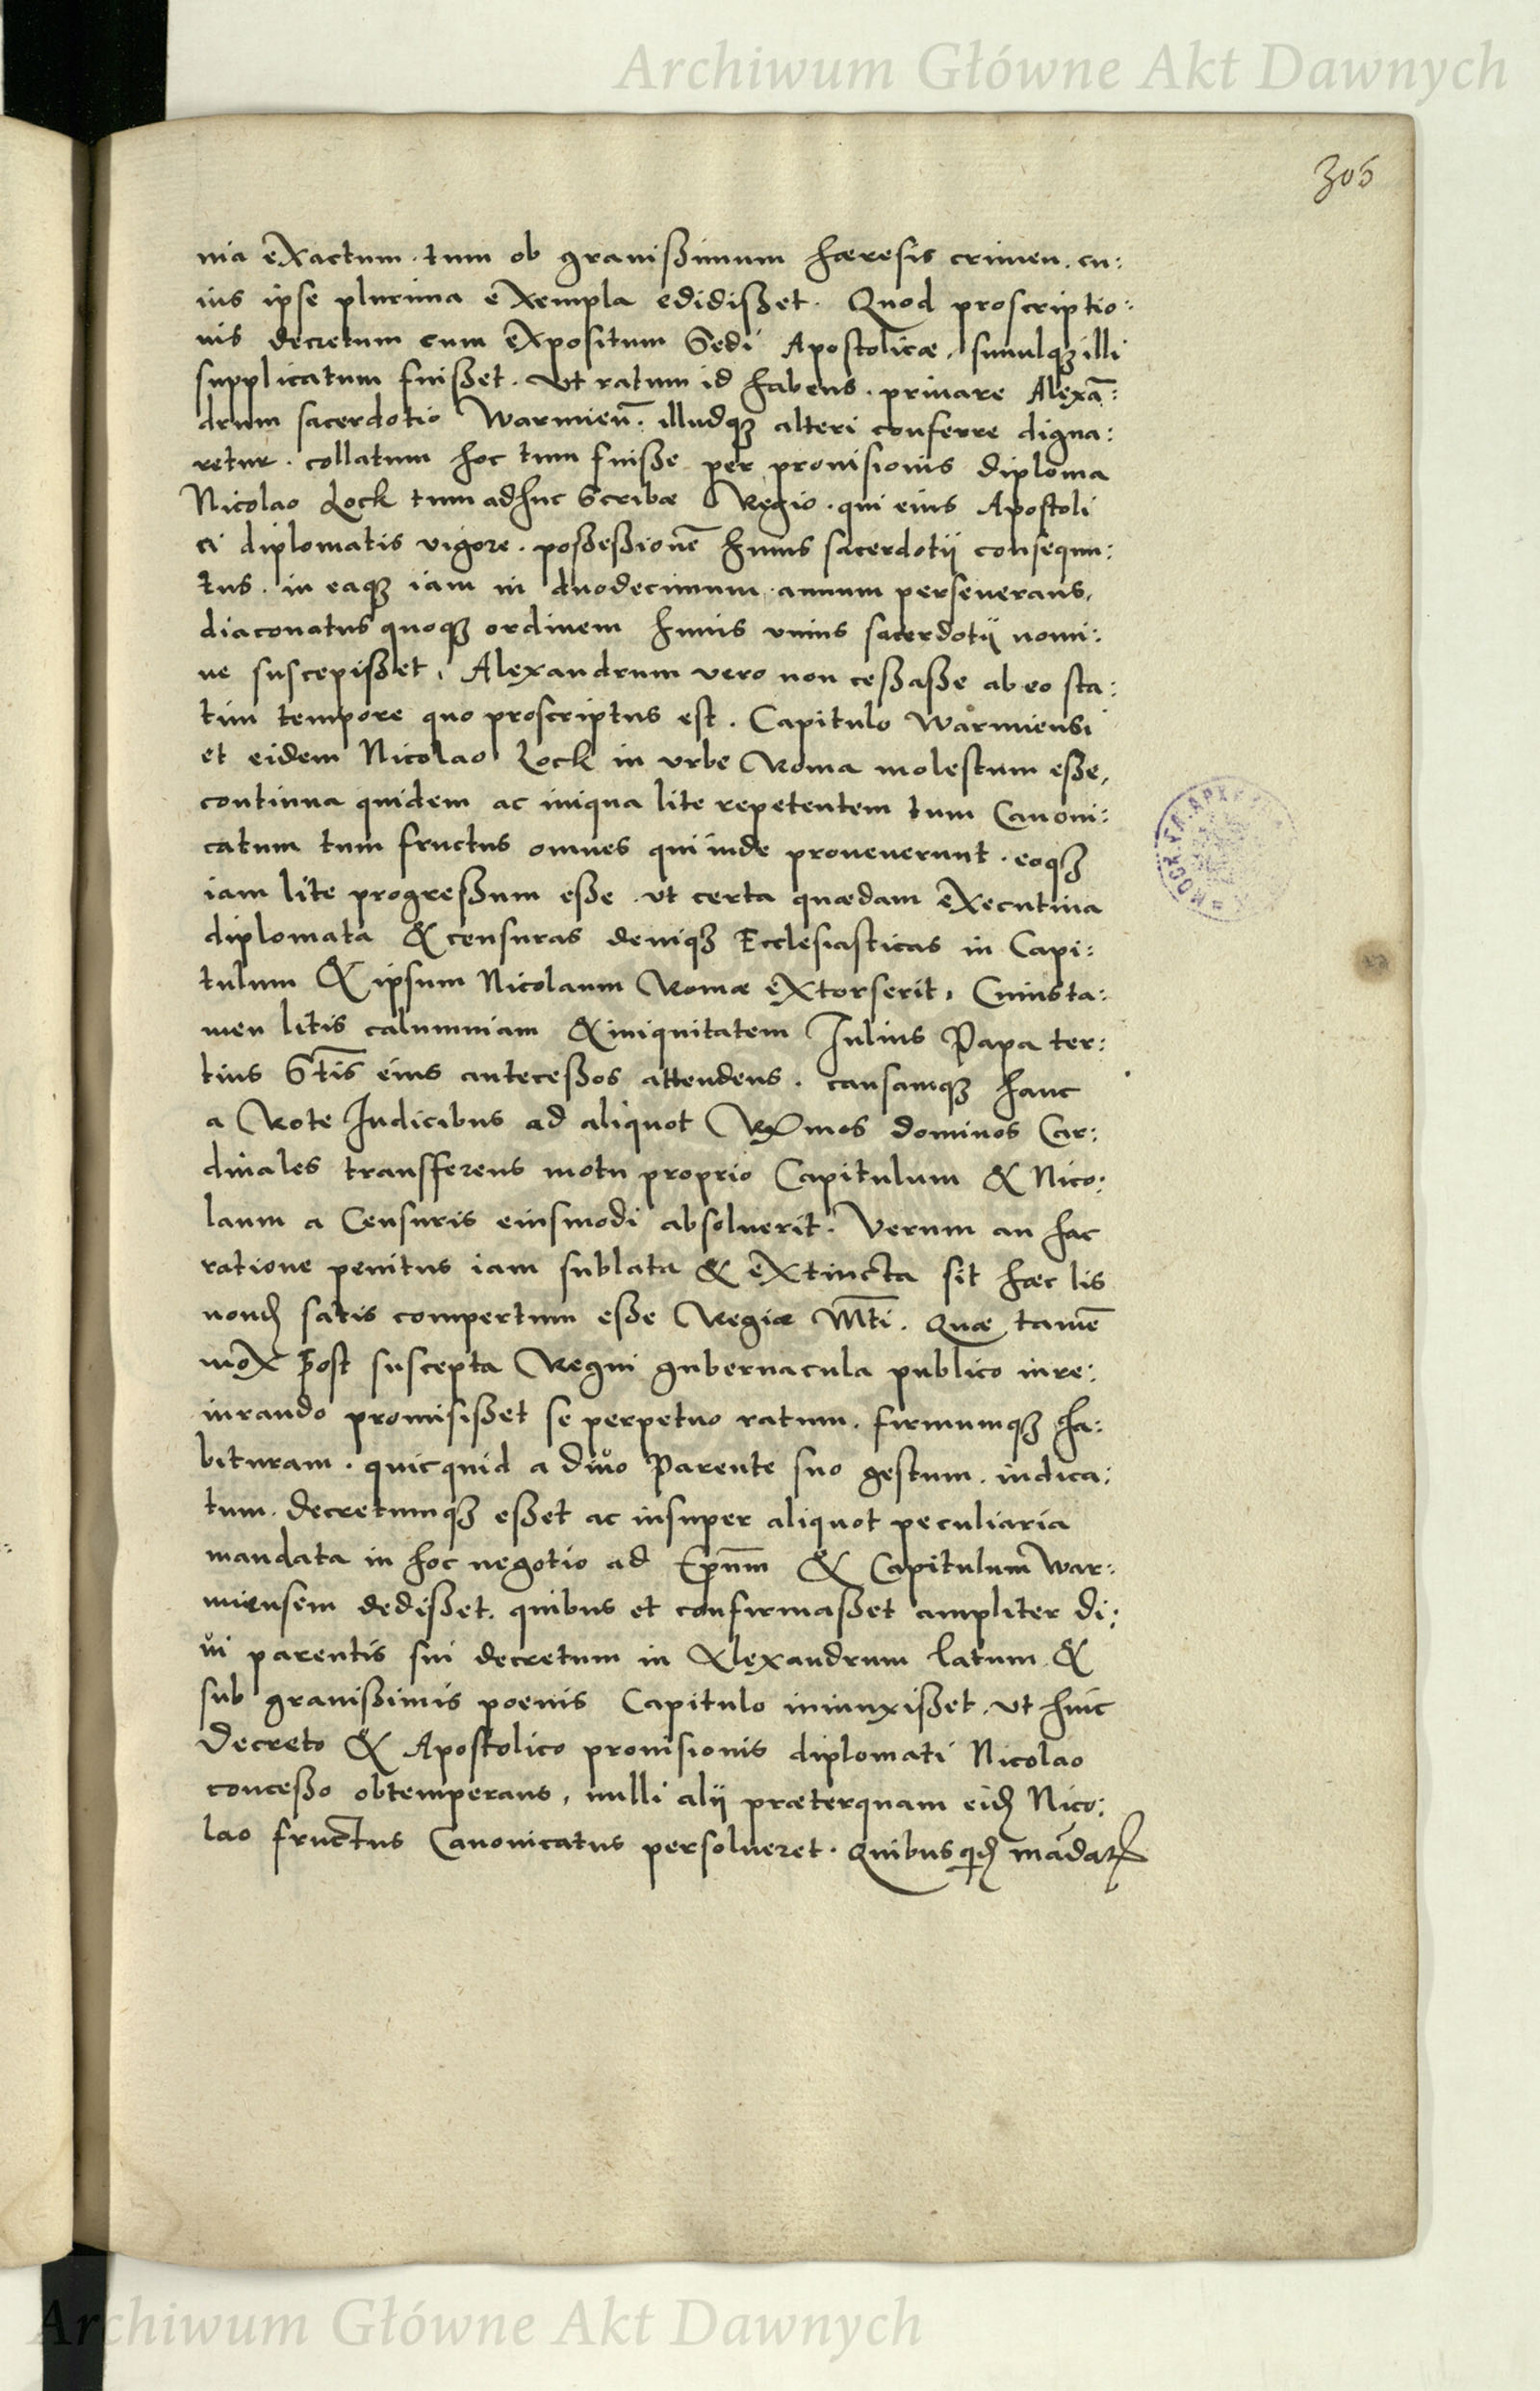 Archiwum Główne Akt Dawnych
305
nia exactum. tum ob grauißimum hæresis crimen. cu:
ius ipse plurima exempla edidißet. Quod proscriptio:
nis decretum cum expositum Sedi Apostolicæ, simulqꝫ illi
supplicatum fuißet. Vt ratum id habens. priuare Alexā:
drum sacerdotio Warmien̄. illudqꝫ alteri conferre digna:
retur. collatum hoc tum fuiße per prouisionis diploma
Nicolao Lock tum adhuc Scribæ Regio. qui eius Apostoli
ci diplomatis vigore. poßeßionē huius sacerdotij consequu:
tus. in eaqꝫ iam in duodecimum annum perseuerans,
diaconatus quoqꝫ ordinem huius vnius sacerdotij nomi:
ne suscepißet, Alexandrum vero non ceßaße ab eo sta:
tim tempore quo proscriptus est. Capitulo Warmiensi
et eidem Nicolao Lock in vrbe Roma molestum eße,
continua quidem ac iniqua lite repetentem tum Canoni:
catum tum fructus omnes qui inde prouenerunt. eoqꝫ
iam lite progreßum eße vt certa quædam executiua
diplomata & censuras deniqꝫ Ecclesiasticas in Capi:
tulum & ipsum Nicolaum Romæ extorserit, Cuius ta:
men litis calumniam & iniquitatem Iulius Papa ter:
tius S̄tis eius anteceßos attendens. causamqꝫ hanc
a Rote Iudicibus ad aliquot R̄mos dominos Car:
dinales transferens motu proprio Capitulum & Nico:
laum a Censuris eiusmodi absoluerit. Verum an hac
ratione penitus iam sublata & extincta sit hæc lis
nond. satis compertum eße Regiæ M̄ti. Quæ tamē
mox post suscepta Regni gubernacula publico iure:
iurando promisißet se perpetuo ratum. firmumqꝫ ha:
bituram. quicquid a diuo Parente suo gestum. iudica:
tum. decretumqꝫ eßet ac insuper aliquot peculiaria
mandata in hoc negotio ad Ep̄um & Capitulum War:
miensem dedißet. quibus et confirmaßet ampliter di:
ui parentis sui decretum in Alexandrum latum &
sub grauißimis poenis Capitulo iniunxißet. vt huic
decreto & Apostolico prouisionis diplomati Nicolao
conceßo obtemperans, nulli alij præterquam eid. Nico:
lao fructus Canonicatus persolueret. Quibus qd. mādatis
Archiwum Główne Akt Dawnych